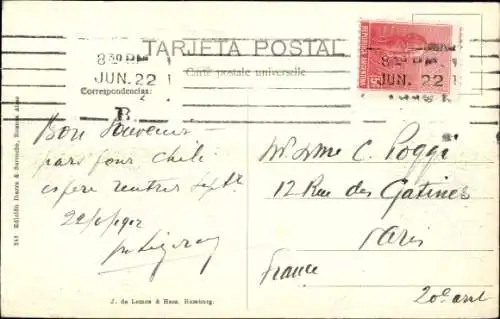 TARJETA POSTAL
Carte postale universelle
Correspondencias:
8 30 PM
JUN. 22
8 30 PM
JUN. 22
B.
Bon Souvenir
pars pour Chili
espère rentrer Sept.
22/6/912
Mme C. Poggi
12 Rue des Gatines
Paris
France
20e arrt
J. de Lemos & Hnos. Hamburg.
Edición Ibarra & Buenos Aires